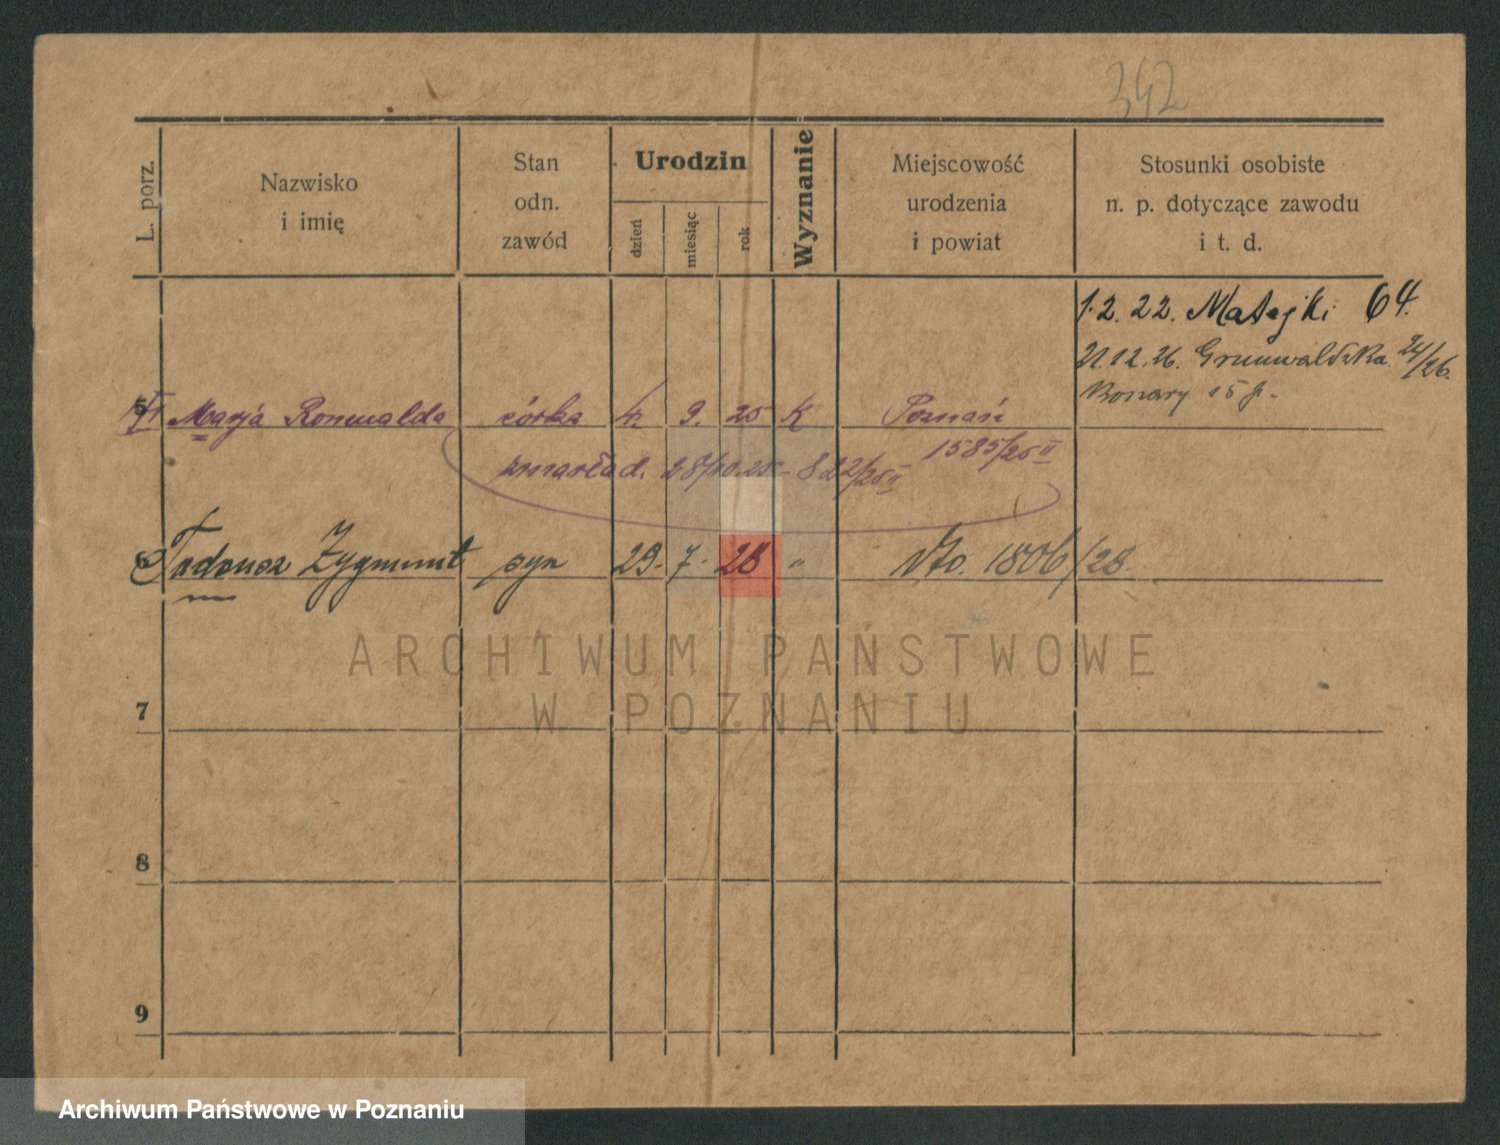 342
L. porz.
Nazwisko
i imię
Stan
odn.
zawód
Urodzin
dzień
miesiąc
rok
Wyznanie
Miejscowość
urodzenia
i powiat
Stosunki osobiste
n. p. dotyczące zawodu
i t. d.
1.2. 22. Matejki 64.
21.12.26. Grunwaldzka 24/26.
5 Marja Romualda córka 4. 9. 25 K Poznań
1585/25 II
zmarła d. 28/10.25 - 822/25 II
6 Tadeusz Zygmunt syn 29. 7. 28 " 1806/28.
ARCHIWUM PAŃSTWOWE
W POZNANIU
7
8
9
Archiwum Państwowe w Poznaniu